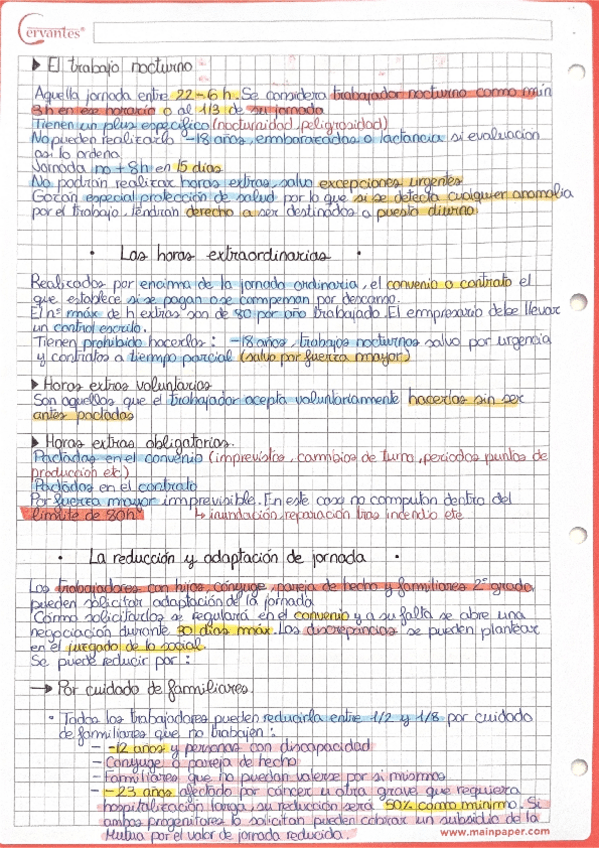 Cervantes®
▶ El trabajo nocturno
Aquella jornada entre 22-6 h. Se considera trabajador nocturno como min
3h en ese horario o al 1/3 de su jornada
Tienen un plus específico (nocturnidad, peligrosidad)
No pueden realizarlo -18 años, embarazadas o lactancia si evaluacion
asi lo ordena
Jornada no + 8h en 15 días
No podrán realizar horas extras, salvo excepciones urgentes
Gozan especial protección de salud por lo que si se detecta cualquier anomalia
por el trabajo, tendran derecho a ser destinados a puesto diurno
• Las horas extraordinarias •
Realizadas por encima de la jornada ordinaria, el convenio o contrato el
que establece si se pagan o se compensan por descanso.
El nº máx de h extras son de 80 por año trabajado. El empresario debe llevar
un control escrito.
Tienen prohibido hacerlas: -18 años, trabajos nocturnos salvo por urgencia
y contratos a tiempo parcial (salvo por fuerza mayor)
▶ Horas extras voluntarias
Son aquellas que el trabajador acepta voluntariamente hacerlas sin ser
antes pactadas
▶ Horas extras obligatorias.
Pactadas en el convenio (imprevistos, cambios de turno, periodos puntas de
producción etc)
Pactadas en el contrato
Por fuerza mayor imprevisible. En este caso no computan dentro del
límite de 80h ↳ inundación, reparación tras incendio etc
• La reducción y adaptación de jornada •
Los trabajadores con hijos, cónyuge, pareja de hecho y familiares 2º grado,
pueden solicitar adaptación de la jornada
Como solicitarlas se regulará en el convenio y a su falta se abre una
negociación durante 30 días máx. Las discrepancias se pueden plantear
en el juzgado de lo social.
Se puede reducir por:
→ Por cuidado de familiares.
• Todos los trabajadores pueden reducirla entre 1/2 y 1/8 por cuidado
de familiares que no trabajen:
- -12 años y personas con discapacidad
- Cónyuge o pareja de hecho
- Familiares que no puedan valerse por si mismos
- -23 años afectado por cáncer u otra grave que requiera
hospitalización larga, su reducción será 50% como mínimo. Si
ambos progenitores lo solicitan pueden cobrar un subsidio de la
Mutua por el valor de jornada reducida.
www.mainpaper.com